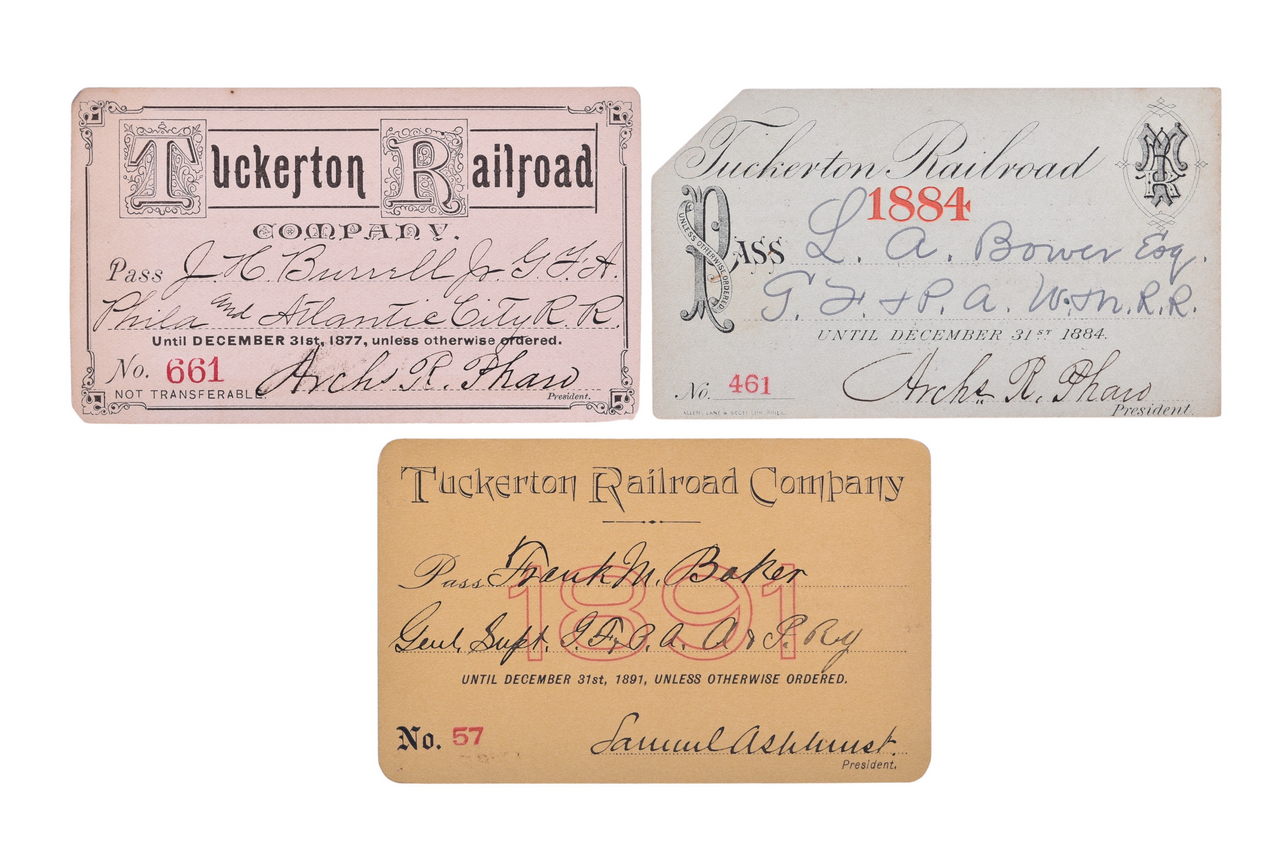 Tuckerton Railroad
COMPANY.
Pass J. H. Burrell Jr. G. F. A.
Phila and Atlantic City R. R.
Until DECEMBER 31st, 1877, unless otherwise ordered.
No. 661 Archs R. Pharo
NOT TRANSFERABLE. President.
Tuckerton Railroad TRR
1884
Pass L. A. Bower Esq.
UNLESS OTHERWISE ORDERED
G. F. & P. A. W. & N. R. R.
UNTIL DECEMBER 31ST 1884.
No. 461 Archs R. Pharo
ALLEN, LANE & SCOTT LITH. PHILA. President.
Tuckerton Railroad Company
Pass Frank M. Baker
1891
Genl. Supt. G. F. & P. A. A & P. Ry
UNTIL DECEMBER 31st, 1891, UNLESS OTHERWISE ORDERED.
No. 57 Samuel Ashhurst.
President.